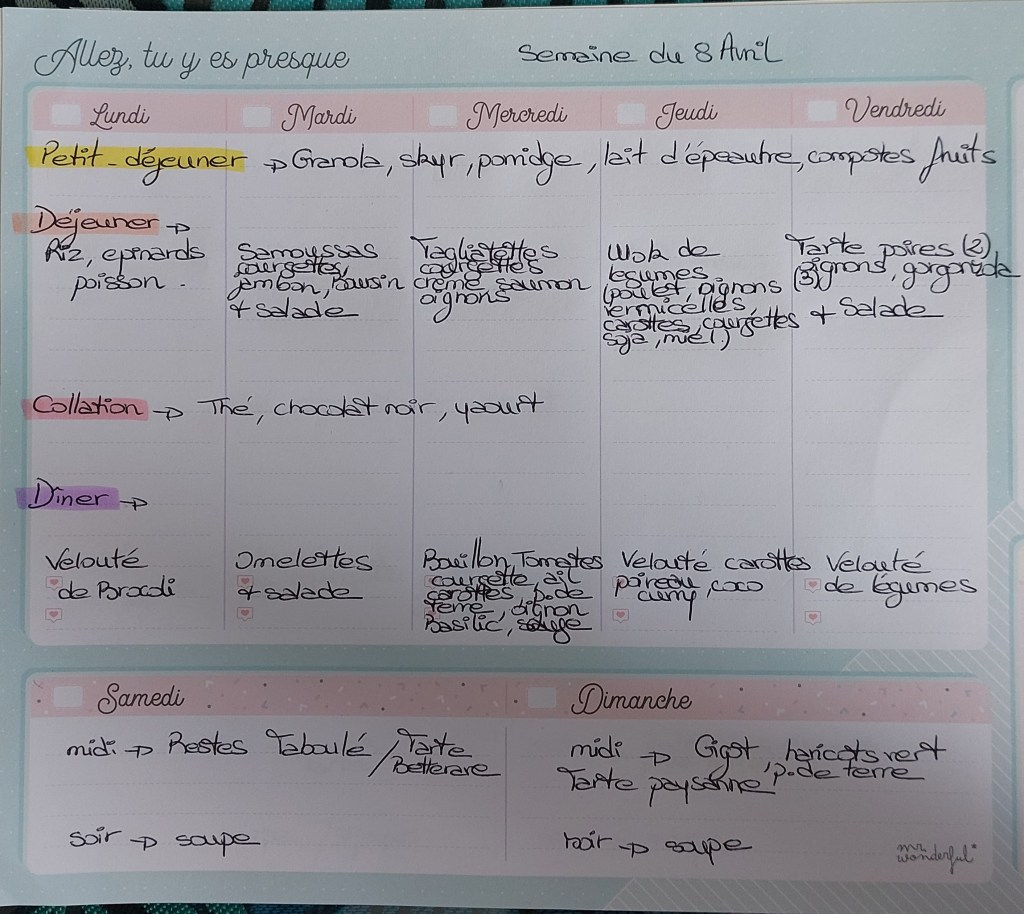 Allez, tu y es presque
Semaine du 8 Avril
Lundi
Mardi
Mercredi
Jeudi
Vendredi
Petit-déjeuner → Granola, skyr, porridge, lait d'épeautre, compotes fruits
Déjeuner →
Riz, epinards
poisson.
Samoussas
courgettes,
jambon, Boursin
+ salade
Tagliatettes
courgettes
crème saumon
oignons
Wok de
légumes
(poulet, oignons
vermicelles,
carottes, courgettes
soja, miel.)
Tarte poires (2),
(3) oignons, gorgonzola
+ Salade
Collation → Thé, chocolat noir, yaourt
Dîner →
Velouté
de Brocoli
Omelettes
+ salade
Bouillon, Tomates
courgette, ail
carottes, p.de
terre, oignon
Basilic, sauge
Velouté carottes
poireau, coco
curry
Velouté
de légumes
Samedi
midi → Restes Taboulé / Tarte
Betterave
soir → soupe
Dimanche
midi → Gigot, haricots vert
Tarte paysanne, p.de terre
soir → soupe
mr.
wonderful*